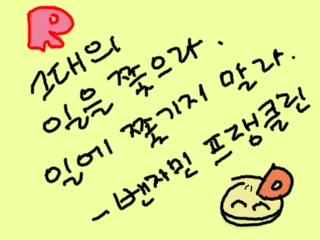 R
그대의
일을 쫓으라.
일에 쫓기지 말라.
- 벤자민 프랭클린